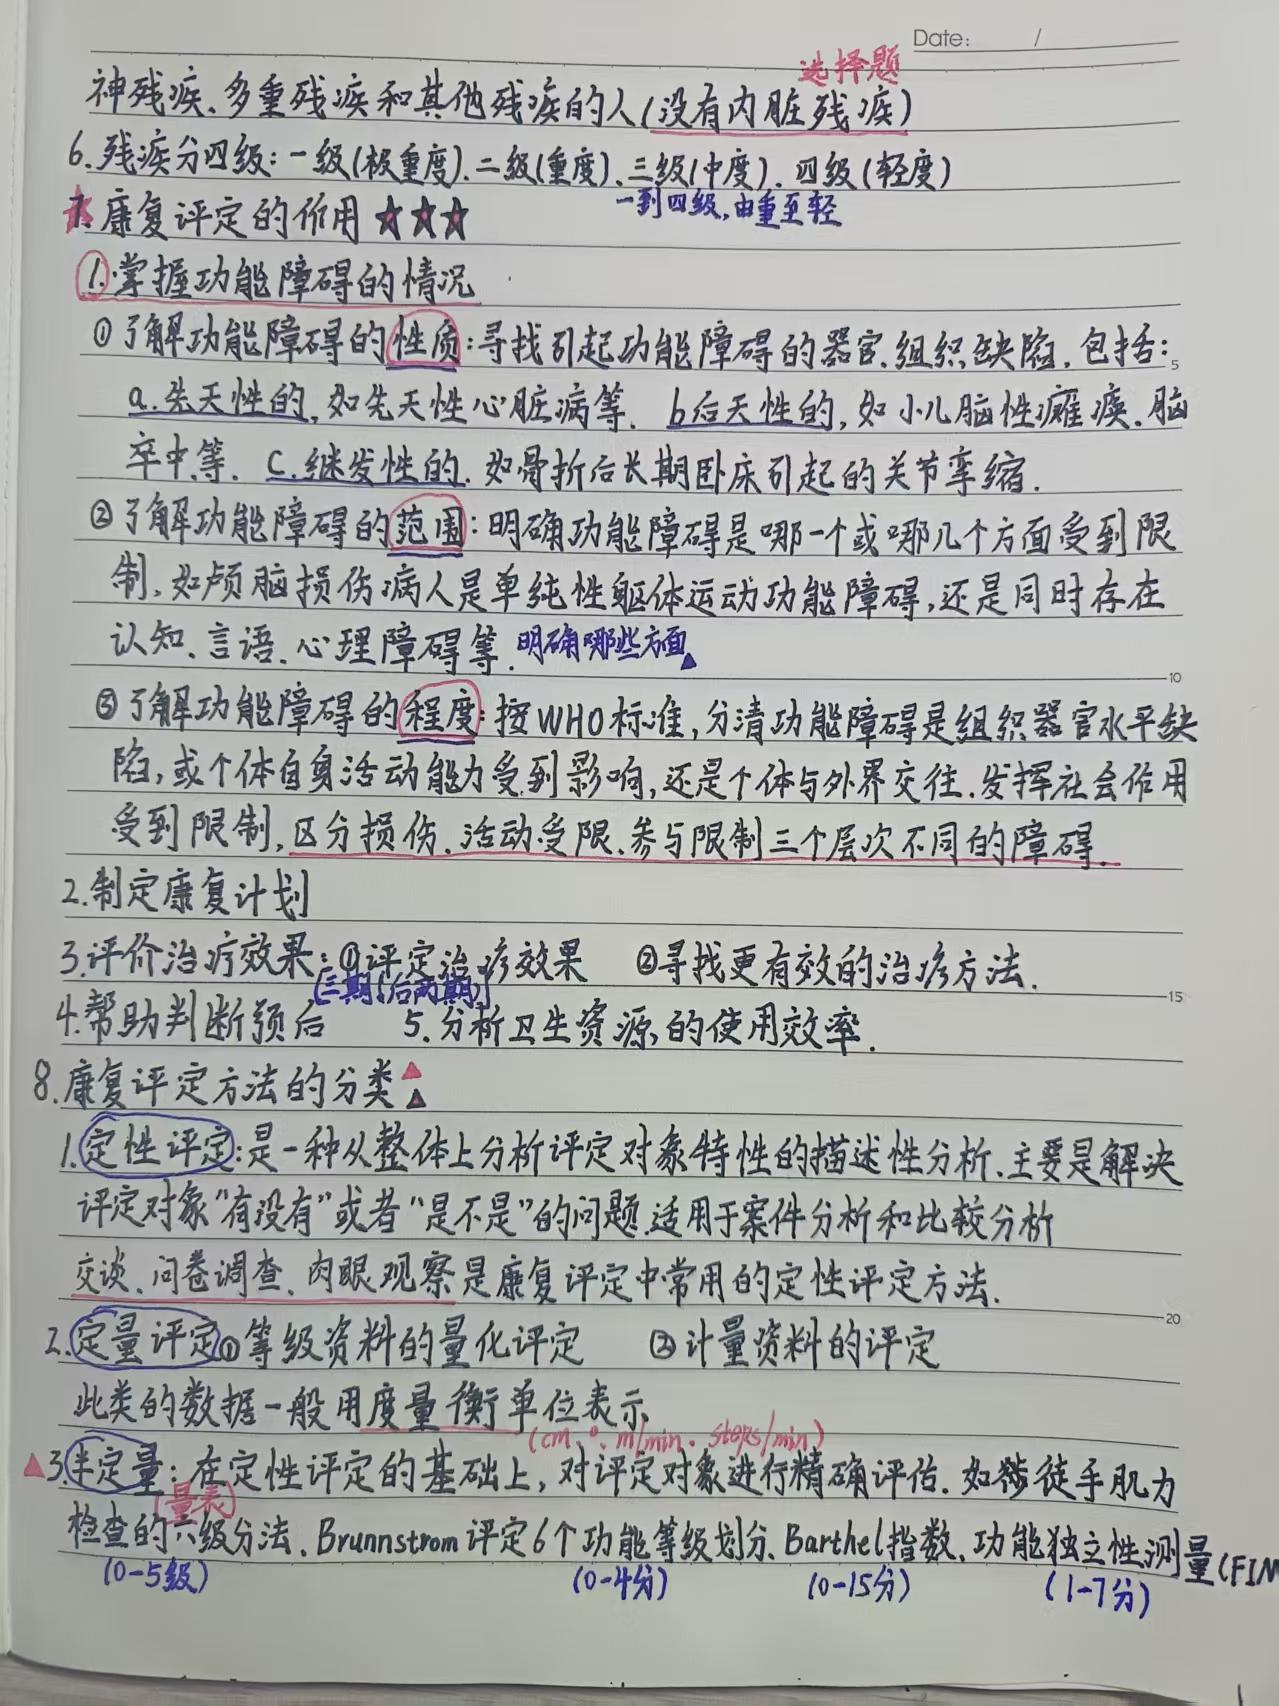 Date: /
选择题
神残疾、多重残疾和其他残疾的人(没有内脏残疾)
6.残疾分四级:一级(极重度)、二级(重度)、三级(中度)、四级(轻度)
一到四级,由重至轻
7.康复评定的作用★★★
1.掌握功能障碍的情况
①了解功能障碍的性质:寻找引起功能障碍的器官、组织缺陷,包括:
5
a.先天性的,如先天性心脏病等、b后天性的,如小儿脑性瘫痪、脑
卒中等、c.继发性的、如骨折后长期卧床引起的关节挛缩.
②了解功能障碍的范围:明确功能障碍是哪一个或哪几个方面受到限
制,如颅脑损伤病人是单纯性躯体运动功能障碍,还是同时存在
认知、言语、心理障碍等.明确哪些方面▲
10
③了解功能障碍的程度:按WHO标准,分清功能障碍是组织器官水平缺
陷,或个体自身活动能力受到影响,还是个体与外界交往、发挥社会作用
受到限制,区分损伤、活动受限、参与限制三个层次不同的障碍.
2.制定康复计划
3.评价治疗效果:①评定治疗效果 ②寻找更有效的治疗方法.
(三期(后两期))
15
4.帮助判断预后 5.分析卫生资源的使用效率.
8.康复评定方法的分类▲▲
1.定性评定:是一种从整体上分析评定对象特性的描述性分析、主要是解决
评定对象“有没有”或者“是不是”的问题.适用于案件分析和比较分析
交谈、问卷调查、肉眼观察是康复评定中常用的定性评定方法.
20
2.定量评定①等级资料的量化评定 ②计量资料的评定
此类的数据一般用度量衡单位表示
(cm、°、m/min、steps/min)
▲3.半定量:在定性评定的基础上,对评定对象进行精确评估.如徒手肌力
(量表)
检查的六级分法、Brunnstrom评定6个功能等级划分、Barthel指数、功能独立性测量(FIM
(0-5级) (0-4分) (0-15分) (1-7分)